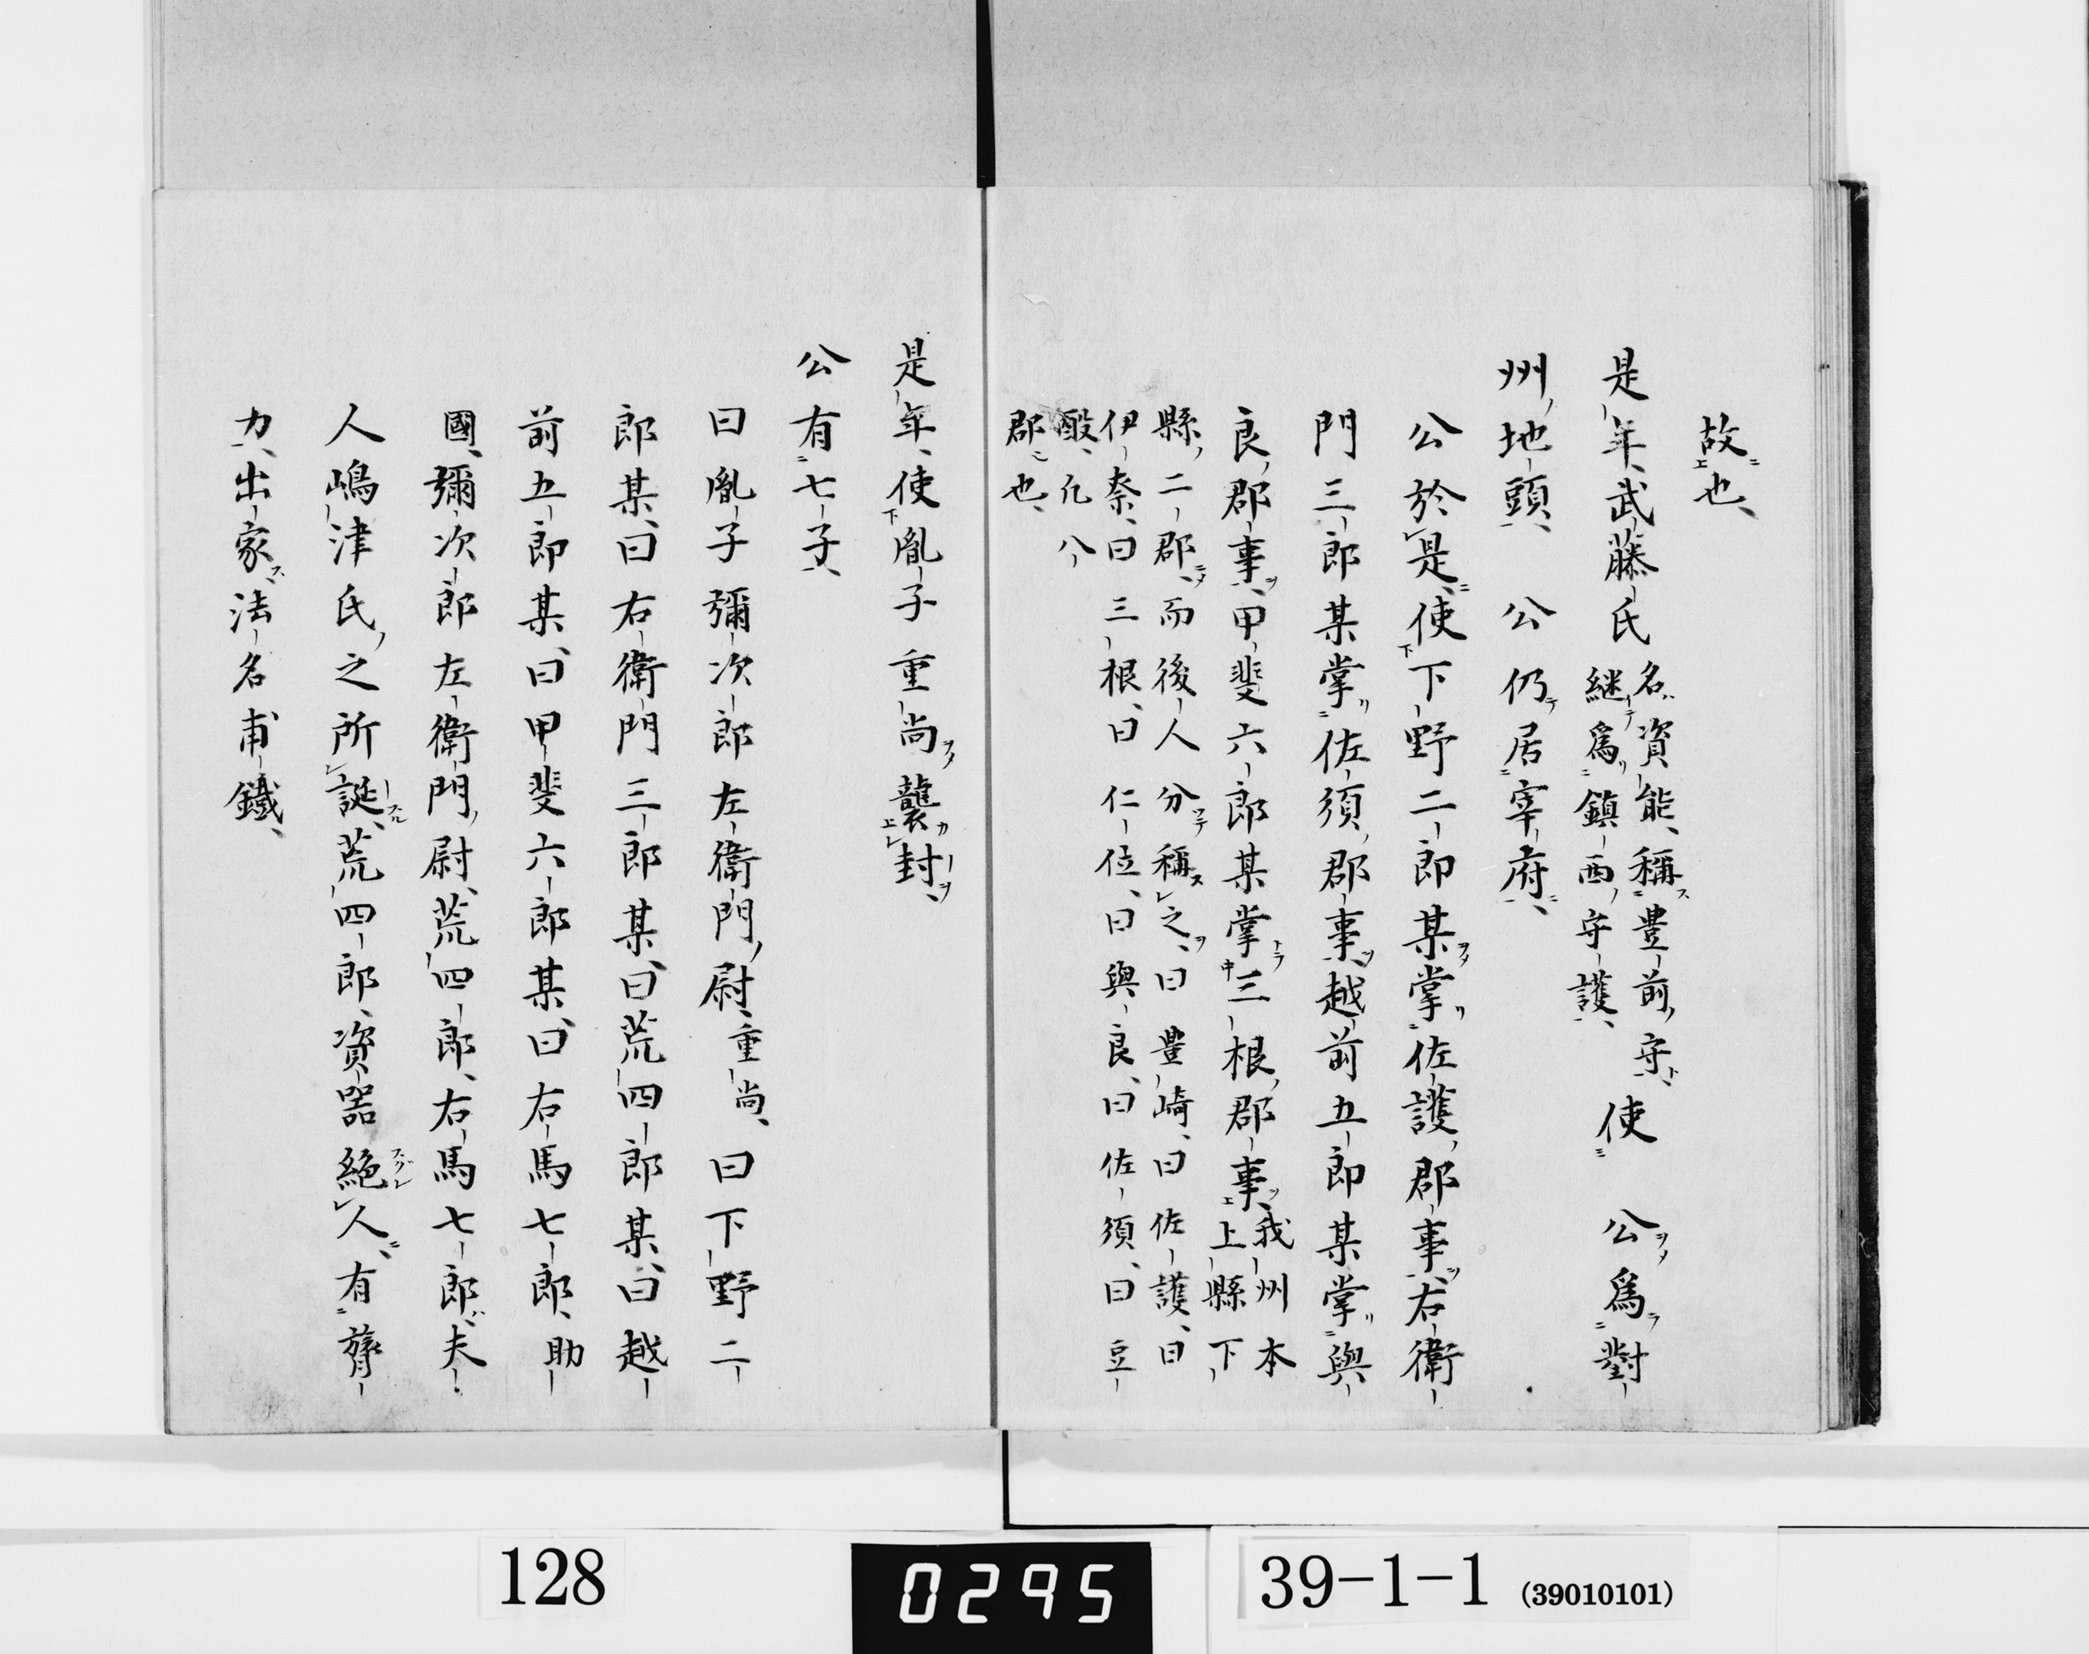 故也
是年武藤氏名資能稱豊前守使公爲對
継爲鎮西守護
州地頭公仍居宰府
公於是使下野二郎某掌佐護郡事右衛
門三郎某掌佐須郡事越前五郎某掌與
良郡事甲斐六郎某掌三根郡事我州本
上縣下
縣二郡而後人分稱之曰豊崎曰佐護曰
伊奈曰三根曰仁位曰與良曰佐須曰豆
酘凢八
郡也
是年使胤子重尚襲封
公有七子
曰胤子彌次郎左衛門尉重尚曰下野二
郎某曰右衛門三郎某曰荒四郎某曰越
前五郎某曰甲斐六郎某曰右馬七郎助
國彌次郎左衛門尉荒四郎右馬七郎夫
人嶋津氏之所誕荒四郎資器絶人有膂
力出家法名甫鐵
128
0295
39-1-1 (39010101)